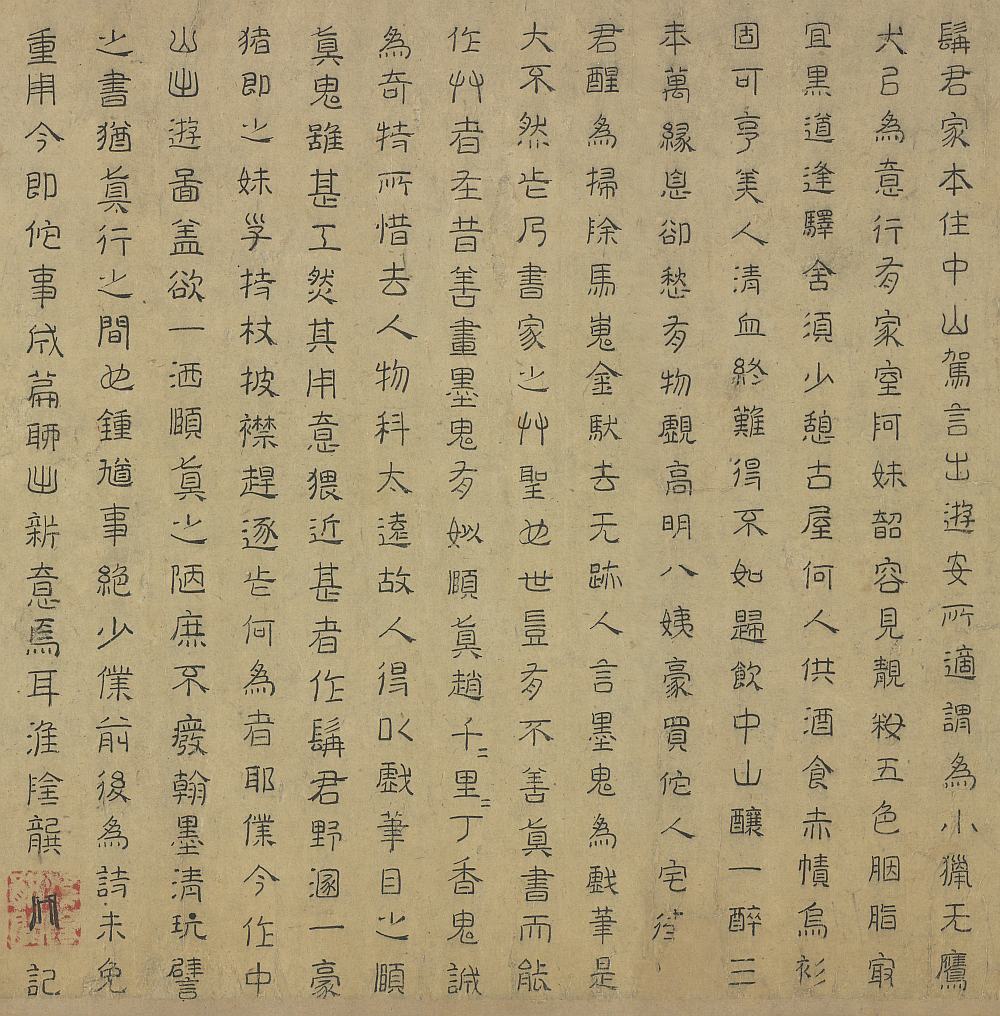 髯君家本住中山駕言出遊安所適謂為小獵无鷹
犬㠯為意行有家室阿妹韶容見靚妝五色胭脂最
宜黑道逢驛舍須少憩古屋何人供酒食赤幘烏衫
固可亨美人清血終難得不如歸飲中山釀一醉三
年萬緣息卻愁有物覷高明八姨豪買佗人宅待
君醒為掃除馬嵬金馱去无跡人言墨鬼為戲筆是
大不然此乃書家之艸聖也世豈有不善真書而能
作艸者在昔善畫墨鬼有姒頤真趙千〻里〻丁香鬼誠
為奇特所惜去人物科太遠故人得以戲筆目之頤
真鬼雖甚工然其用意猥近甚者作髯君野溷一豪
猪即之妹子持杖披襟趕逐此何為者耶僕今作中
山出遊圖蓋欲一洒頤真之陋庶不廢翰墨清玩譬
之書猶真行之間也鍾馗事絕少僕前後為詩未免
重用今即佗事成篇聊出新意焉耳淮陰龔開記